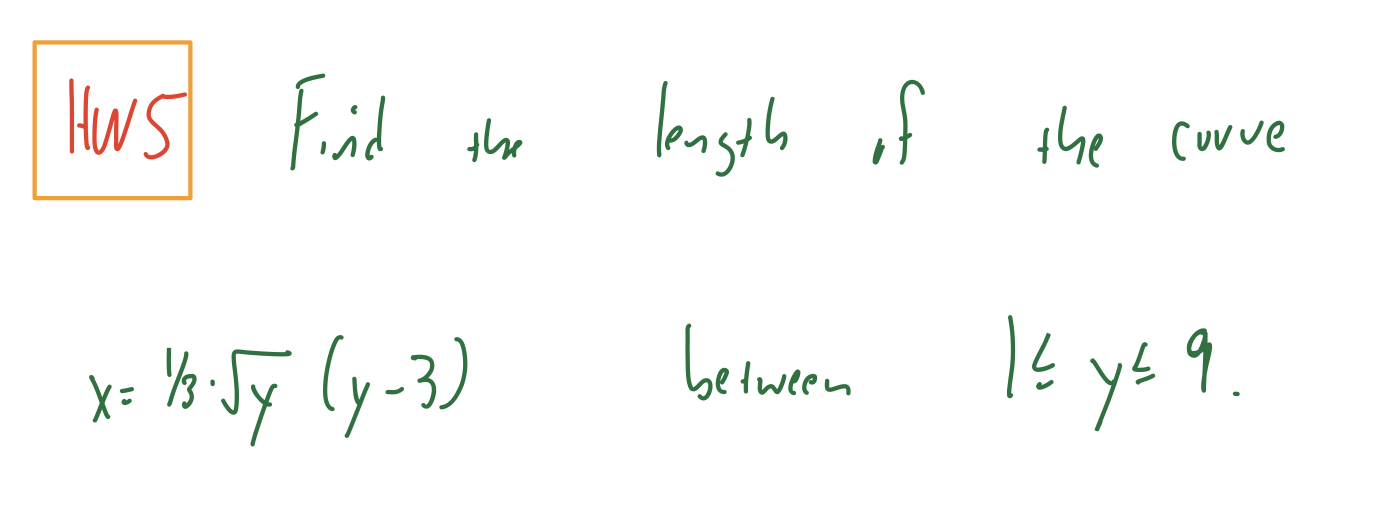 HW5 Find the length of the curve
x = 1/3 · √y (y - 3) between 1 ≤ y ≤ 9.